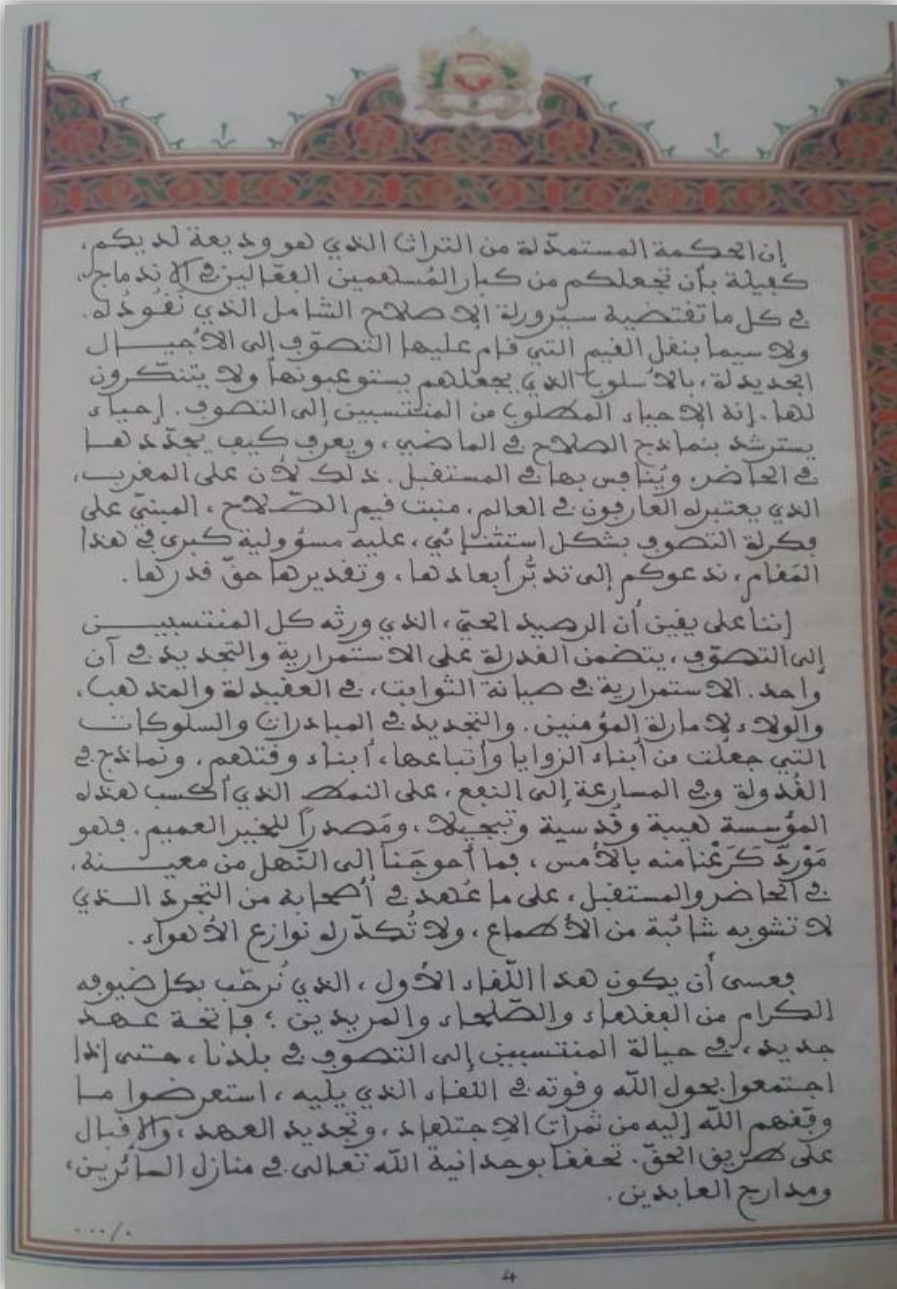 إن الحكمة المستمدّة من التراث الذي هو وديعة لديكم،
كفيلة بأن تجعلكم من كبار المُسهمين الفعّالين في الاندماج،
في كل ما تقتضيه سيرورة الإصلاح الشامل الذي نقوده.
ولا سيما بنقل القيم التي قام عليها التصوّف إلى الأجيال
الجديدة، بالأسلوب الذي يجعلهم يستوعبونها ولا يتنكّرون
لها. إنه الإحياء المطلوب من المنتسبين إلى التصوف. إحياء
يسترشد بنماذج الصلاح في الماضي، ويعرف كيف يجدّدها
في الحاضر، ويُنافس بها في المستقبل. ذلك لأن على المغرب،
الذي يعتبره العارفون في العالم، منبت قيم الصّلاح، المبنيّ على
فكرة التصوف بشكل استثنائي، عليه مسؤولية كبرى في هذا
المَقام، ندعوكم إلى تدبُّر أبعادها، وتقديرها حقّ قدرها.
إننا على يقين أن الرصيد الحيّ، الذي ورثه كل المنتسبين
إلى التصوّف، يتضمن القدرة على الاستمرارية والتجديد في آن
واحد. الاستمرارية في صيانة الثوابت، في العقيدة والمذهب،
والولاء لإمارة المؤمنين. والتجديد في المبادرات والسلوكات
التي جعلت من أبناء الزوايا وأتباعها، أبناء وقتهم. ونماذج في
القُدوة وفي المسارعة إلى النفع، على النمط الذي أكسب هذه
المؤسسة هيبة وقُدسية وتبجيلا، ومَصدراً للخير العميم. فهو
مَوْردٌ كَرَعْنا منه بالأمس، فما أحوجَنا إلى النّهل من معينه،
في الحاضر والمستقبل، على ما عُهد في أصحابه من التجرد الذي
لا تشوبه شائبة من الأطماع، ولا تُكدّره نوازع الأهواء.
فعسى أن يكون هذا اللّقاء الأول، الذي نُرحّب بكل ضيوفه
الكرام من الفقهاء والصّلحاء والمريدين؛ فاتحة عهد
جديد، في حياة المنتسبين إلى التصوف في بلدنا، حتى إذا
اجتمعوا بحول الله وقوته في اللقاء الذي يليه، استعرضوا ما
وفّقهم الله إليه من ثمرات الاجتهاد، وتجديد العهد، والإقبال
على طريق الحقّ. تحققا بوحدانية الله تعالى في منازل السائرين،
ومدارج العابدين.
.../.
4